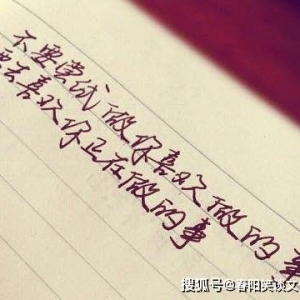 不要尝试做你喜欢做的事
要去喜欢你正在做的事
搜狐号@春阳笑谈文